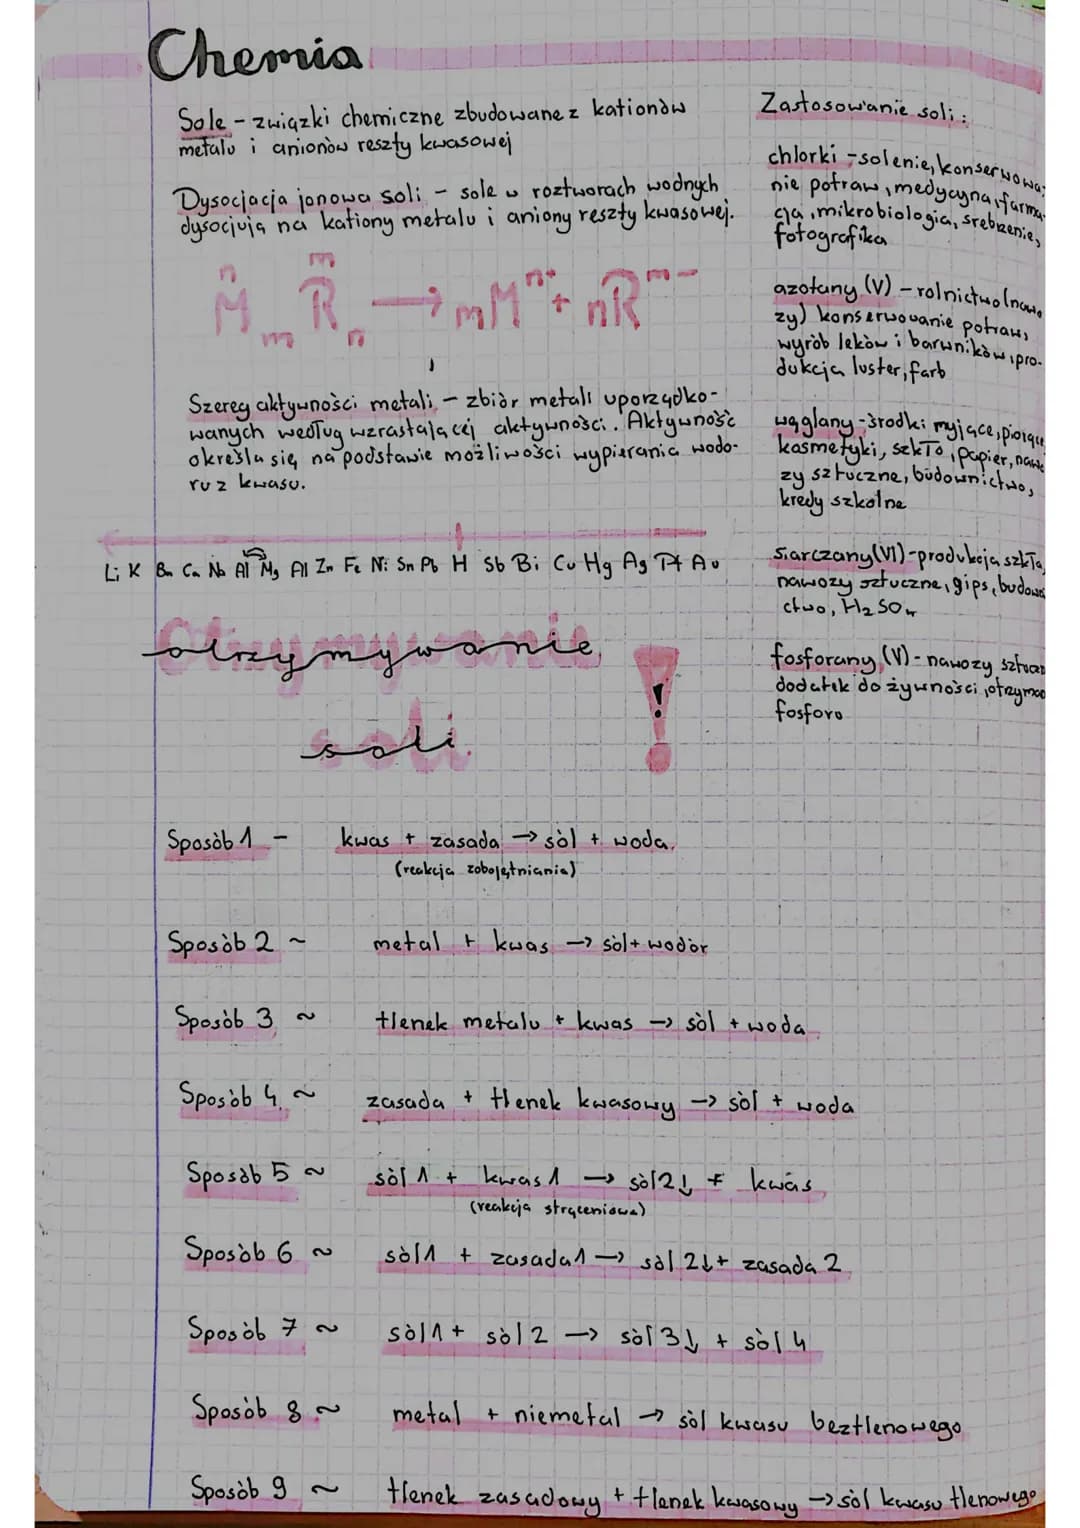 Chemia
Sole - związki chemiczne zbudowane z kationów
metalu i anionów reszty kwasowej
Dysocjacja jonowa soli - sole w roztworach wodnych
dysocjują na kationy metalu i aniony reszty kwasowej.
n m
M m R n → mMⁿ⁺ + nRᵐ⁻
Szereg aktywności metali - zbiór metali uporządko-
wanych według wzrastającej aktywności. Aktywność
określa się na podstawie możliwości wypierania wodo-
ru z kwasu.
Li K Ba Ca Na Al Mg Al Zn Fe Ni Sn Pb H Sb Bi Cu Hg Ag Pt Au
Otrzymywanie
soli
!
Sposób 1 - kwas + zasada → sól + woda
(reakcja zobojętniania)
Sposób 2 ~ metal + kwas → sól + wodór
Sposób 3 ~ tlenek metalu + kwas → sól + woda
Sposób 4 ~ zasada + tlenek kwasowy → sól + woda
Sposób 5 ~ sól 1 + kwas 1 → sól 2↓ + kwas
(reakcja strąceniowa)
Sposób 6 ~ sól 1 + zasada 1 → sól 2↓ + zasada 2
Sposób 7 ~ sól 1 + sól 2 → sól 3↓ + sól 4
Sposób 8 ~ metal + niemetal → sól kwasu beztlenowego
Sposób 9 ~ tlenek zasadowy + tlenek kwasowy → sól kwasu tlenowego
Zastosowanie soli:
chlorki - solenie, konserwowa-
nie potraw, medycyna, farma-
cja, mikrobiologia, srebrzenie,
fotografika
azotany (V) - rolnictwo (nawo
zy) konserwowanie potraw,
wyrób leków i barwników, pro-
dukcja luster, farb
węglany - środki myjące, piorące
kosmetyki, szkło, papier, nawo
zy sztuczne, budownictwo,
kredy szkolne
siarczany (VI) - produkcja szkła,
nawozy sztuczne, gips, budowni
ctwo, H₂SO₄
fosforany (V) - nawozy sztucz
dodatek do żywności, otrzymao
fosforu